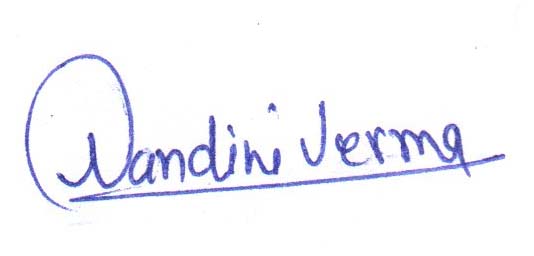 Nandini Verma